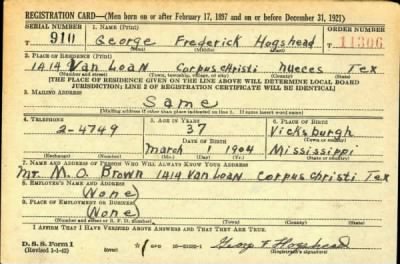 REGISTRATION CARD—(Men born on or after February 17, 1897 and on or before December 31, 1921)
SERIAL NUMBER 1. NAME (Print) ORDER NUMBER
9111 George Frederick Hogshead 11306
2. PLACE OF RESIDENCE (Print)
1414 Van Loan Corpus christi nueces Tex
(Number and street) (Town, township, village, or city) (County) (State)
[THE PLACE OF RESIDENCE GIVEN ON THE LINE ABOVE WILL DETERMINE LOCAL BOARD
JURISDICTION; LINE 2 OF REGISTRATION CERTIFICATE WILL BE IDENTICAL]
3. MAILING ADDRESS
Same
[Mailing address if other than place indicated on line 2. If same insert word same]
4. TELEPHONE 5. AGE IN YEARS 6. PLACE OF BIRTH
2-4749 37 Vicksburgh
DATE OF BIRTH (Town or county)
March 1 1904 Mississippi
(Exchange) (Number) (Mo.) (Day) (Yr.) (State or country)
7. NAME AND ADDRESS OF PERSON WHO WILL ALWAYS KNOW YOUR ADDRESS
Mr. M. O. Brown 1414 Van Loan Corpus Christi Tex
8. EMPLOYER'S NAME AND ADDRESS
(None)
9. PLACE OF EMPLOYMENT OR BUSINESS
(None)
(Number and street or R. F. D. number) (Town) (County) (State)
I AFFIRM THAT I HAVE VERIFIED ABOVE ANSWERS AND THAT THEY ARE TRUE.
D. S. S. Form 1
(Revised 1-1-42) (over) George F Hogshead
(Registrant's signature)